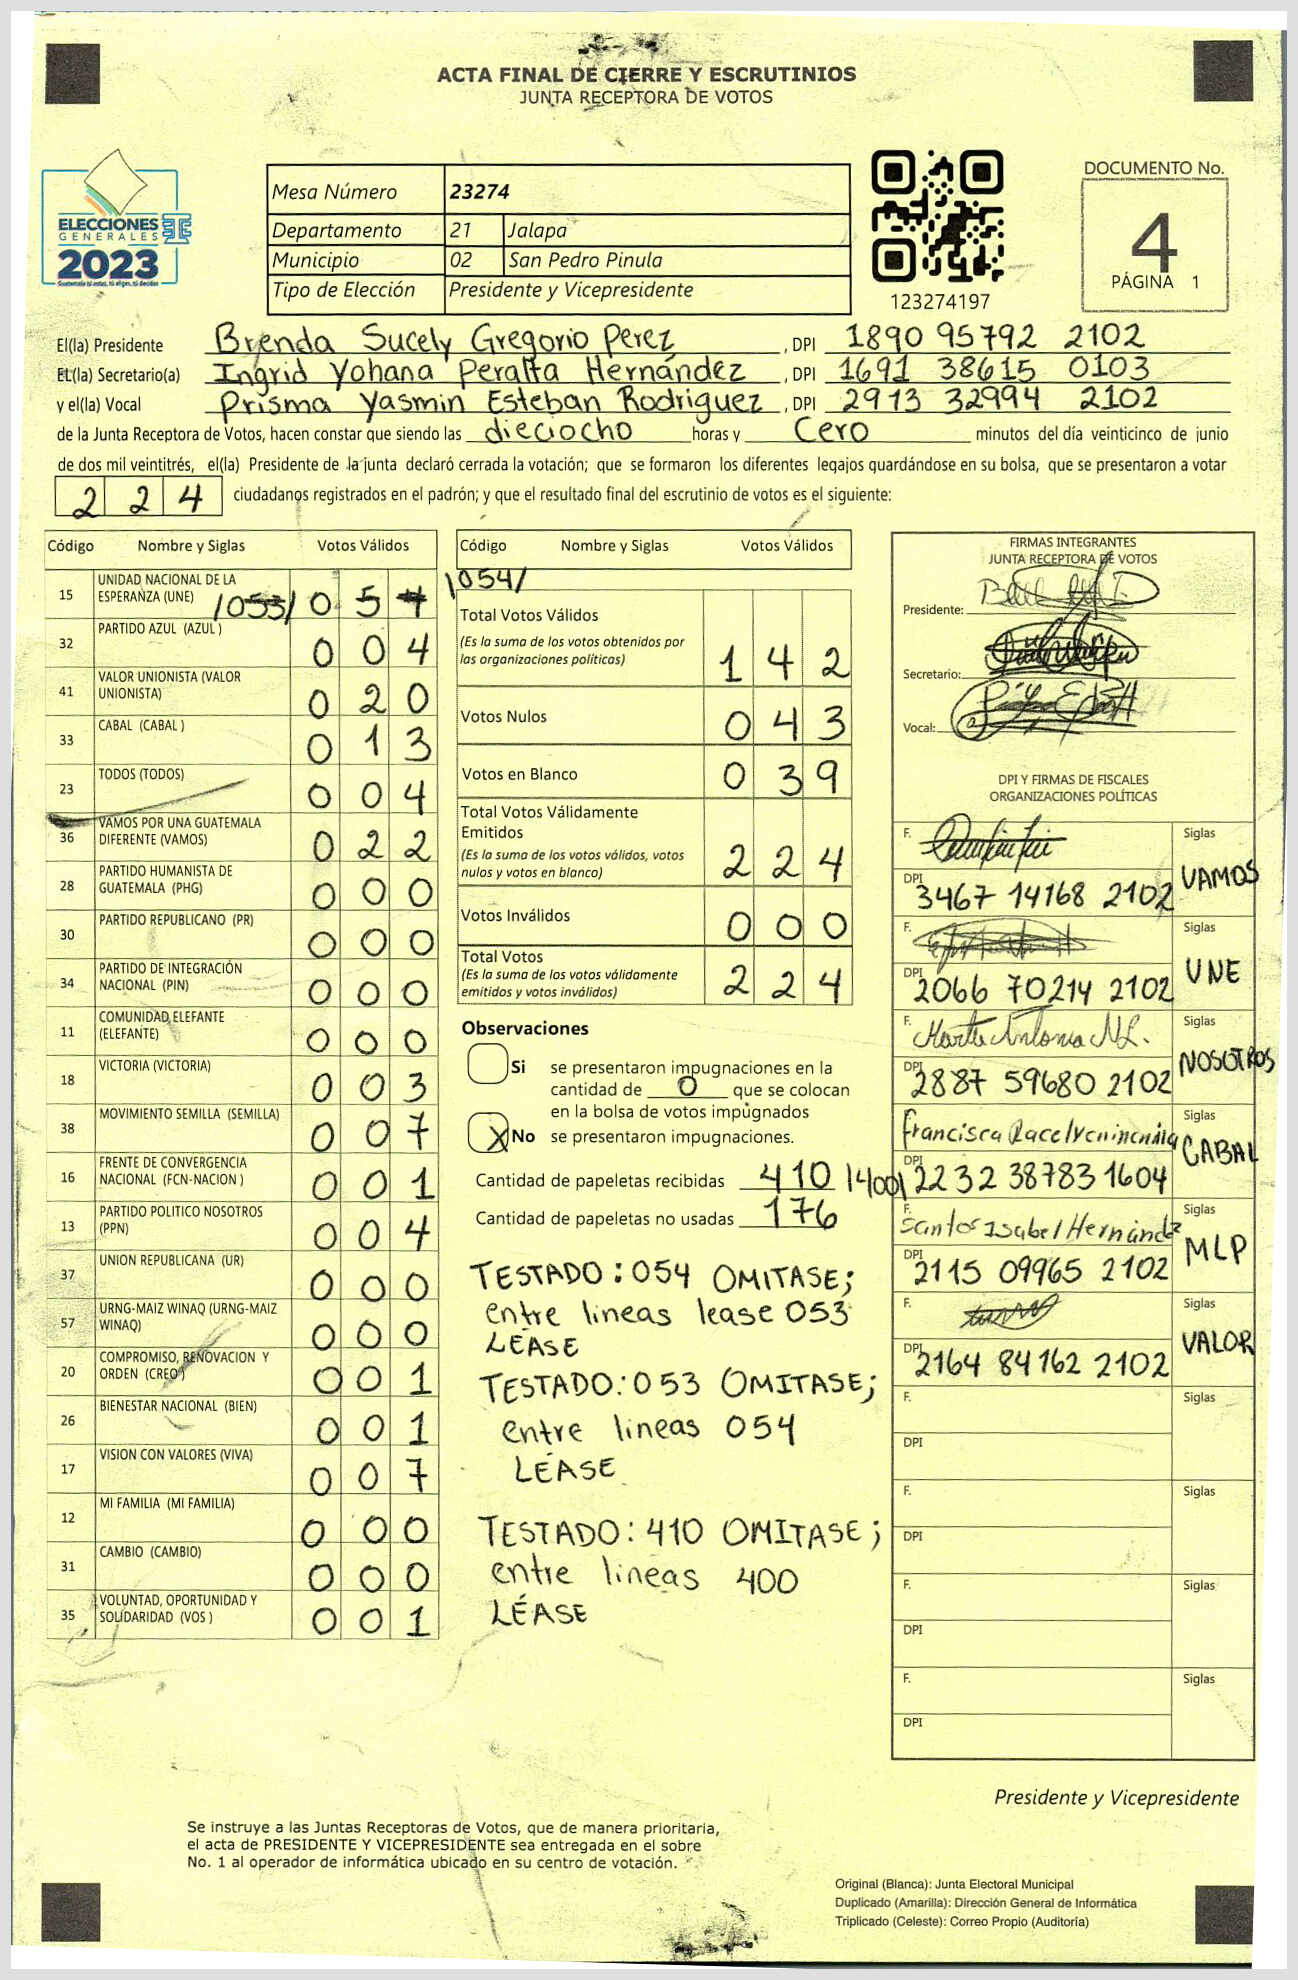 ACTA FINAL DE CIERRE Y ESCRUTINIOS
JUNTA RECEPTORA DE VOTOS
ELECCIONES
GENERALES
2023
Mesa Número 23274
Departamento 21 Jalapa
Municipio 02 San Pedro Pinula
Tipo de Elección Presidente y Vicepresidente
123274197
DOCUMENTO No.
4
PÁGINA 1
El(la) Presidente Brenda Sucely Gregorio Perez, DPI 1890 95792 2102
EL(la) Secretario(a) Ingrid Yohana Peralta Hernández, DPI 1691 38615 0103
y el(la) Vocal Prisma Yasmin Esteban Rodriguez, DPI 2913 32994 2102
de la Junta Receptora de Votos, hacen constar que siendo las dieciocho horas y Cero minutos del día veinticinco de junio
de dos mil veintitrés, el(la) Presidente de la junta declaró cerrada la votación; que se formaron los diferentes legajos guardándose en su bolsa, que se presentaron a votar
224 ciudadanos registrados en el padrón; y que el resultado final del escrutinio de votos es el siguiente:
Código Nombre y Siglas Votos Válidos
15 UNIDAD NACIONAL DE LA
ESPERANZA (UNE) /053/ 0 5 4
/054/
32 PARTIDO AZUL (AZUL ) 0 0 4
41 VALOR UNIONISTA (VALOR
UNIONISTA) 0 2 0
33 CABAL (CABAL ) 0 1 3
23 TODOS (TODOS) 0 0 4
36 VAMOS POR UNA GUATEMALA
DIFERENTE (VAMOS) 0 2 2
28 PARTIDO HUMANISTA DE
GUATEMALA (PHG) 0 0 0
30 PARTIDO REPUBLICANO (PR) 0 0 0
34 PARTIDO DE INTEGRACIÓN
NACIONAL (PIN) 0 0 0
11 COMUNIDAD ELEFANTE
(ELEFANTE) 0 0 0
18 VICTORIA (VICTORIA) 0 0 3
38 MOVIMIENTO SEMILLA (SEMILLA) 0 0 7
16 FRENTE DE CONVERGENCIA
NACIONAL (FCN-NACION ) 0 0 1
13 PARTIDO POLITICO NOSOTROS
(PPN) 0 0 4
37 UNION REPUBLICANA (UR) 0 0 0
57 URNG-MAIZ WINAQ (URNG-MAIZ
WINAQ) 0 0 0
20 COMPROMISO, RENOVACION Y
ORDEN (CREO ) 0 0 1
26 BIENESTAR NACIONAL (BIEN) 0 0 1
17 VISION CON VALORES (VIVA) 0 0 7
12 MI FAMILIA (MI FAMILIA) 0 0 0
31 CAMBIO (CAMBIO) 0 0 0
35 VOLUNTAD, OPORTUNIDAD Y
SOLIDARIDAD (VOS ) 0 0 1
Código Nombre y Siglas Votos Válidos
Total Votos Válidos
(Es la suma de los votos obtenidos por
las organizaciones políticas) 1 4 2
Votos Nulos 0 4 3
Votos en Blanco 0 3 9
Total Votos Válidamente
Emitidos
(Es la suma de los votos válidos, votos
nulos y votos en blanco) 2 2 4
Votos Inválidos 0 0 0
Total Votos
(Es la suma de los votos válidamente
emitidos y votos inválidos) 2 2 4
Observaciones
Si se presentaron impugnaciones en la
cantidad de 0 que se colocan
en la bolsa de votos impugnados
X No se presentaron impugnaciones.
Cantidad de papeletas recibidas 410 /400/
Cantidad de papeletas no usadas 176
TESTADO: 054 OMITASE;
entre lineas lease 053
LÉASE
TESTADO: 053 OMITASE;
entre lineas 054
LÉASE
TESTADO: 410 OMITASE;
entre lineas 400
LÉASE
FIRMAS INTEGRANTES
JUNTA RECEPTORA DE VOTOS
Presidente:
Secretario:
Vocal:
DPI Y FIRMAS DE FISCALES
ORGANIZACIONES POLÍTICAS
F. Siglas
DPI 3467 14168 2102 VAMOS
F. Siglas
DPI 2066 70214 2102 UNE
F. Marta Antonia Siglas
DPI 2887 59680 2102 NOSOTROS
Francisca Siglas
DPI 2232 38783 1604 CABAL
F. Santos Isabel Hernánde Siglas
DPI 2115 09965 2102 MLP
F. Siglas
DPI 2164 84162 2102 VALOR
F. Siglas
DPI
F. Siglas
DPI
F. Siglas
DPI
F. Siglas
DPI
Presidente y Vicepresidente
Se instruye a las Juntas Receptoras de Votos, que de manera prioritaria,
el acta de PRESIDENTE Y VICEPRESIDENTE sea entregada en el sobre
No. 1 al operador de informática ubicado en su centro de votación.
Original (Blanca): Junta Electoral Municipal
Duplicado (Amarilla): Dirección General de Informática
Triplicado (Celeste): Correo Propio (Auditoría)